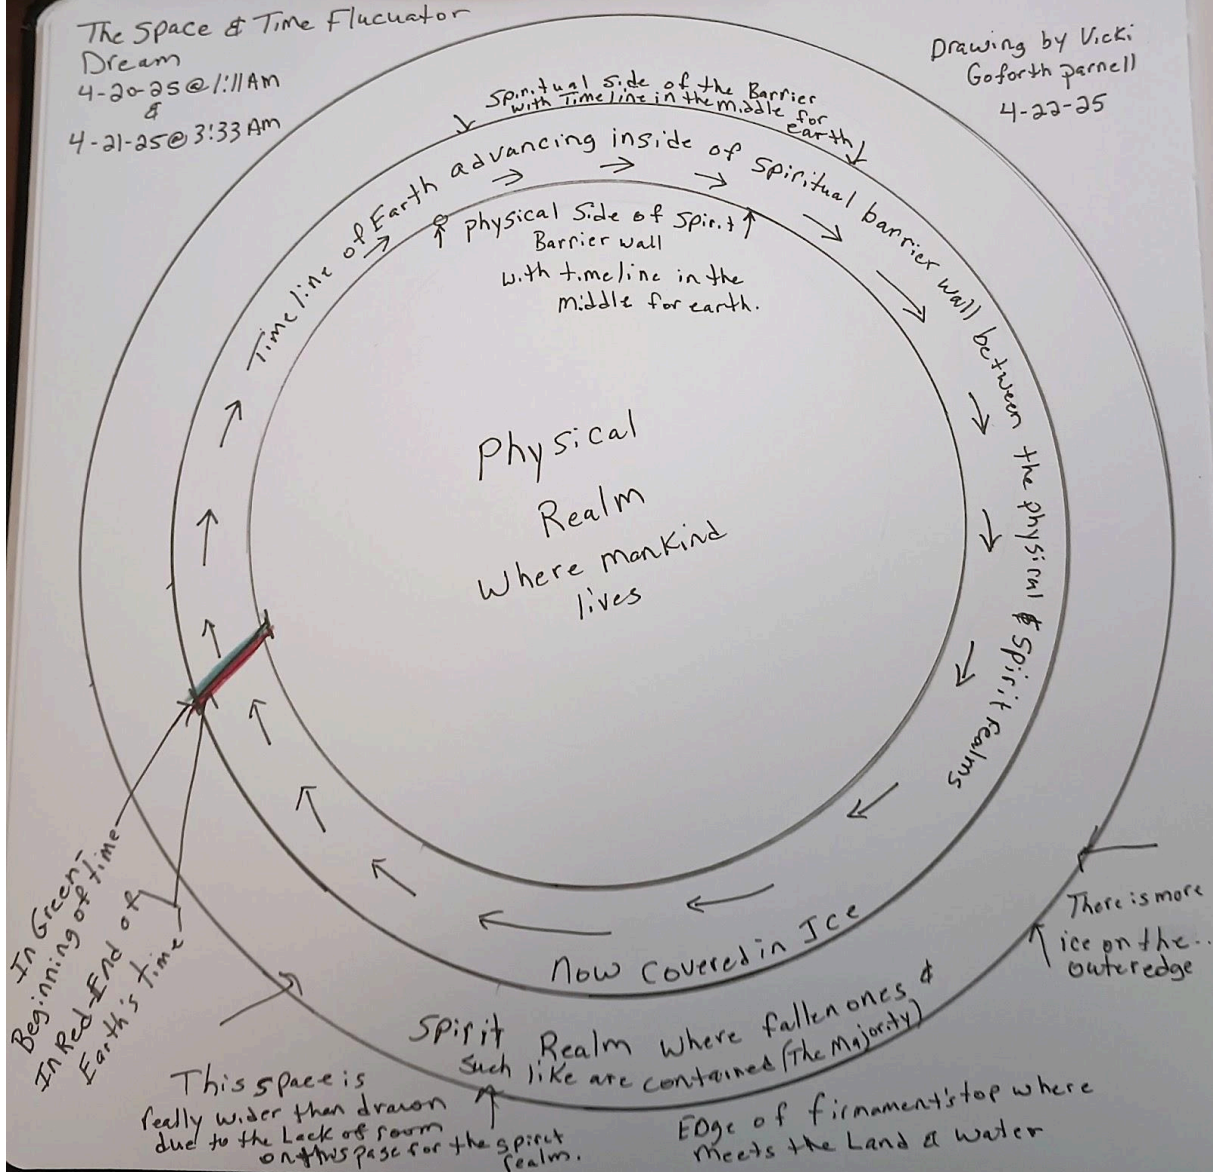 The Space & Time Flucuator
Dream
4-20-25 @ 1:11 Am
&
4-21-25 @ 3:33 Am
Drawing by Vicki
Goforth Parnell
4-22-25
Spiritual side of the Barrier
with Timeline in the middle for
earth
Timeline of Earth advancing inside of Spiritual barrier wall between the physical & Spirit realms
physical Side of Spirit
Barrier wall
with timeline in the
middle for earth.
Physical
Realm
Where mankind
lives
In Green-
Beginning of time
In Red-End of
Earth's time
Now Covered in Ice
There is more
ice on the..
outer edge
Spirit Realm where fallen ones &
Such like are contained (The Majority)
This space is
really wider than drawn
due to the Lack of room
on this page for the spirit
realm.
Edge of firmament's top where
meets the Land & water